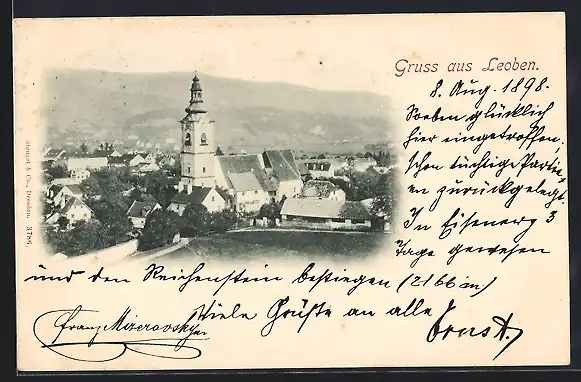 Gruss aus Leoben.
8. Aug. 1898.
Soeben glücklich
hier eingetroffen,
schon tüchtige Partie
en zurückgelegt.
In Eisenerz 3
Tage gewesen
und den Reichenstein bestiegen (2166 m)
Viele Grüße an alle Ernst.
Franz Mizerovsky
Stengel & Co., Dresden. 3786.